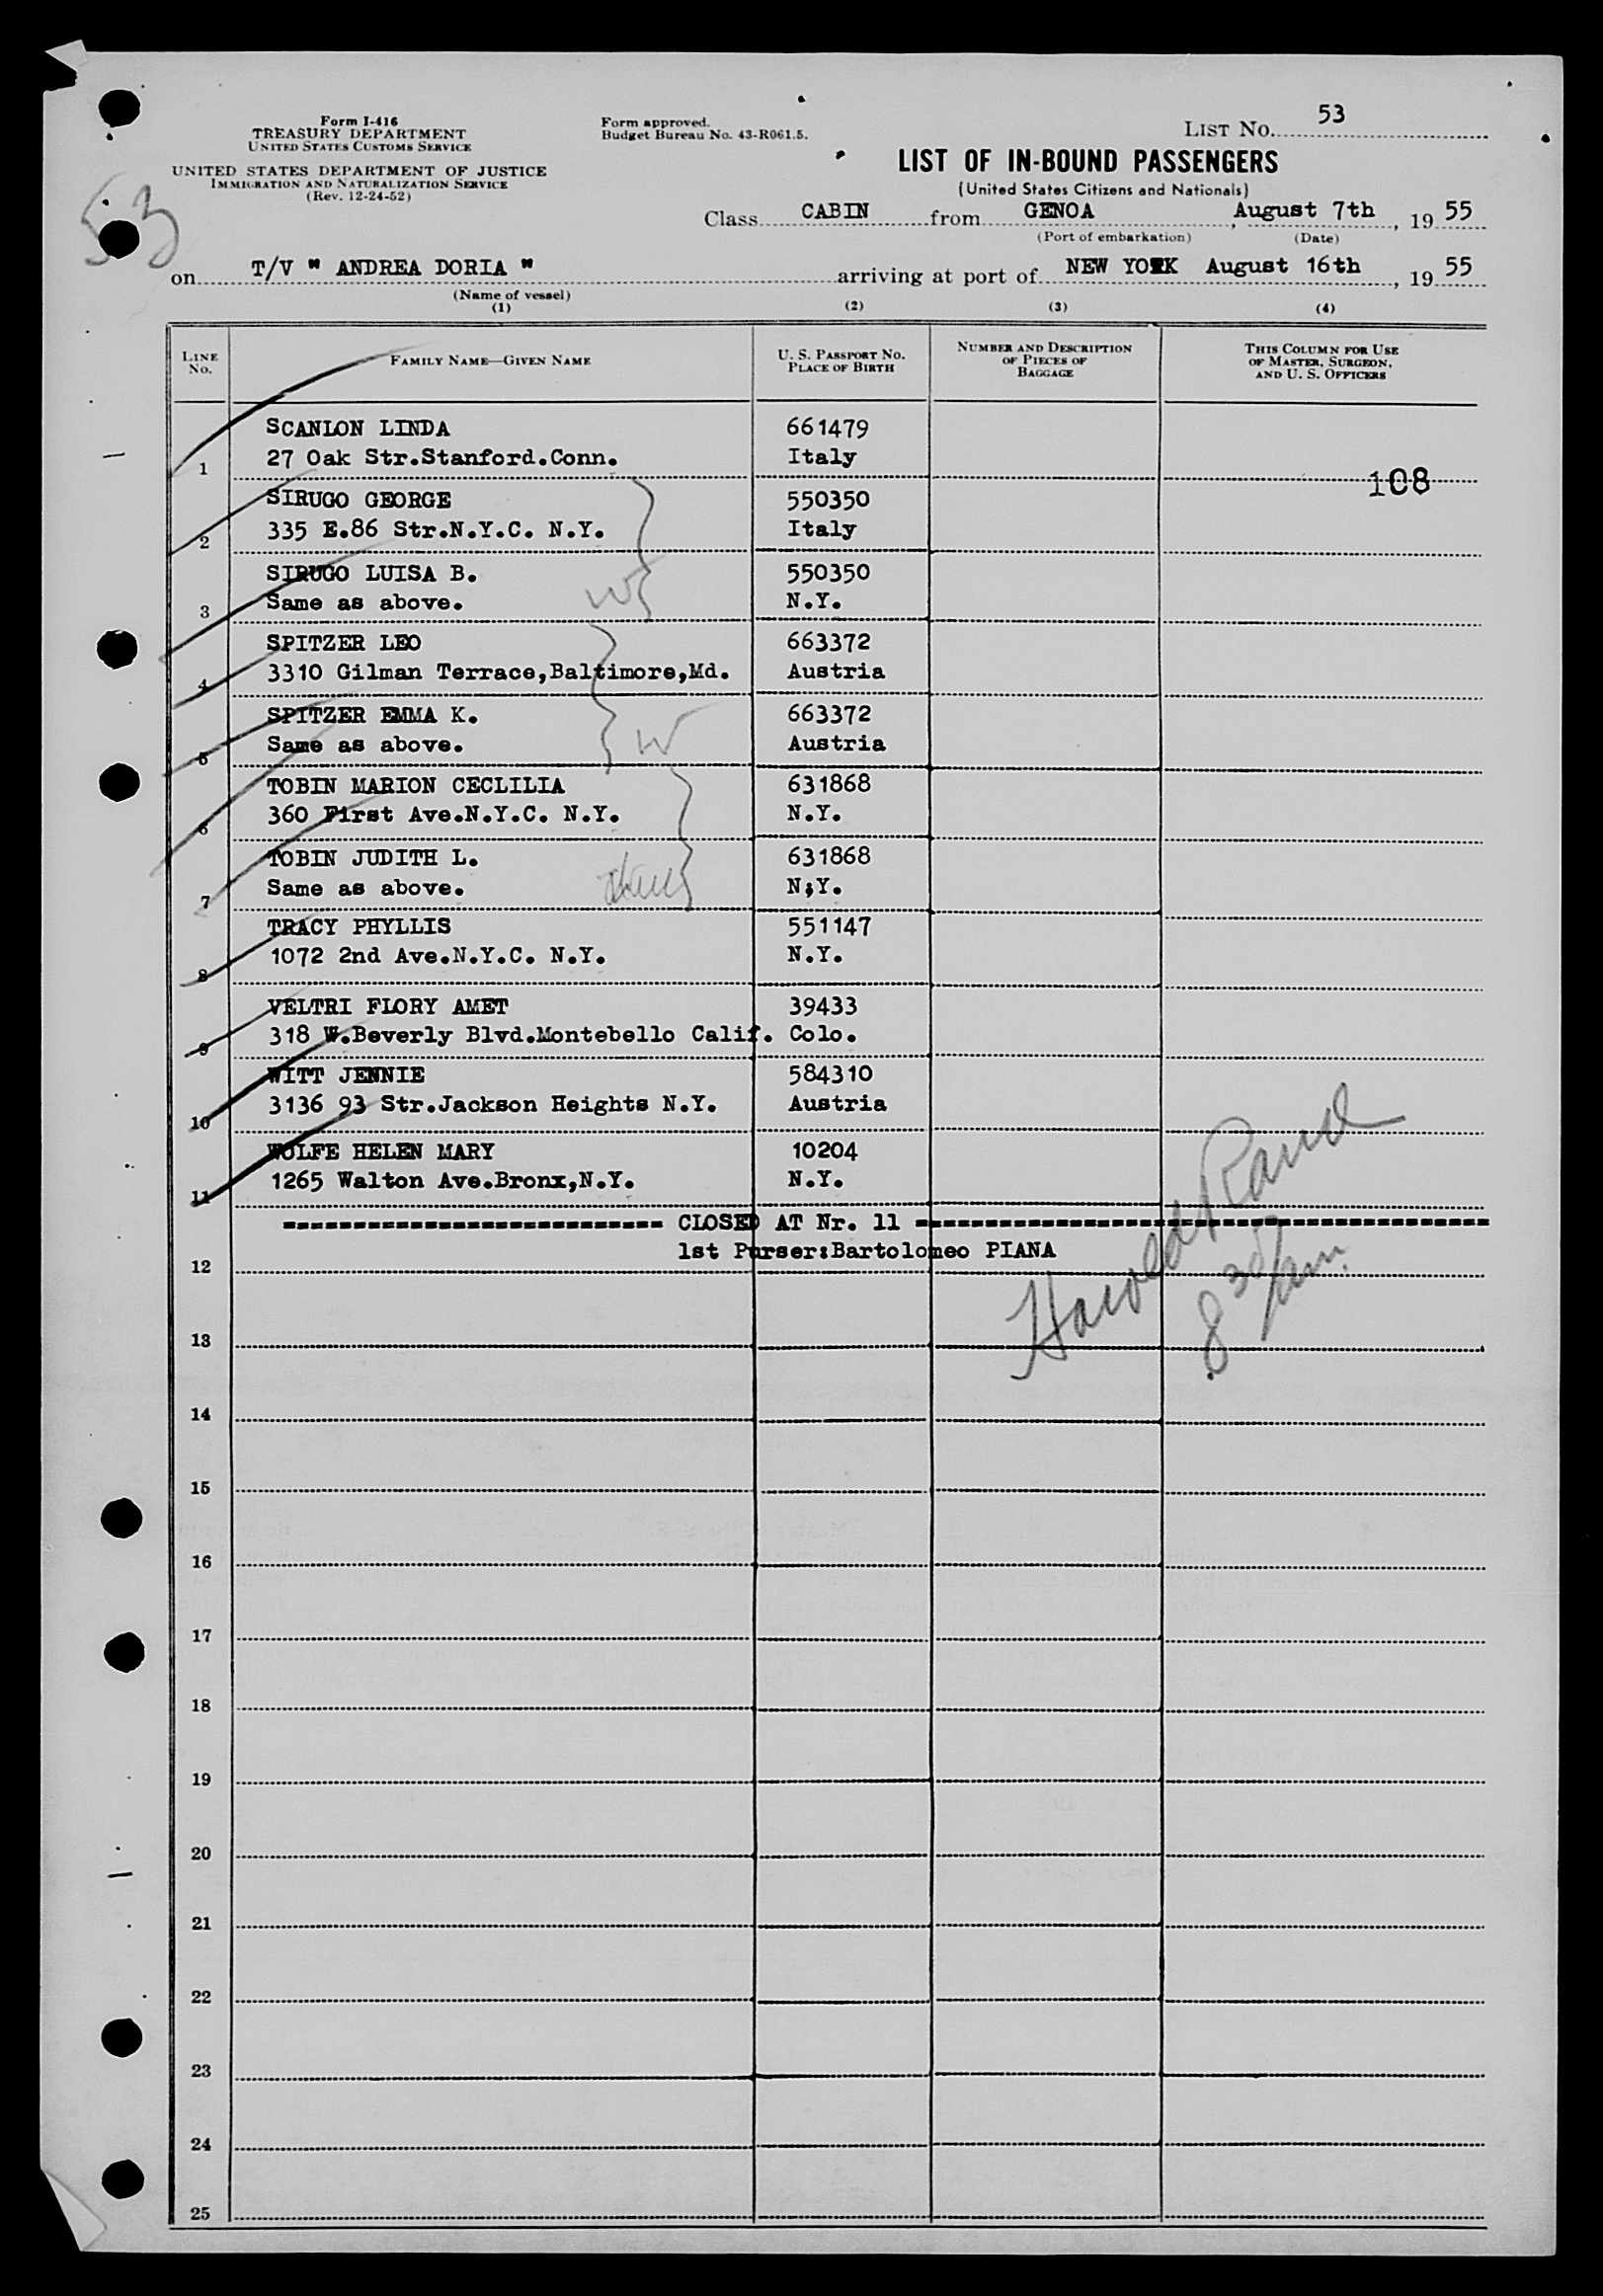 53
Form I-416
TREASURY DEPARTMENT
UNITED STATES CUSTOMS SERVICE
UNITED STATES DEPARTMENT OF JUSTICE
IMMIGRATION AND NATURALIZATION SERVICE
(Rev. 12-24-52)
Form approved.
Budget Bureau No. 43-R061.5.
LIST No. 53
LIST OF IN-BOUND PASSENGERS
(United States Citizens and Nationals)
Class CABIN from GENOA, August 7th, 19 55
(Port of embarkation) (Date)
on T/V " ANDREA DORIA " arriving at port of NEW YORK August 16th, 19 55
(Name of vessel)
(1) (2) (3) (4)
LINE No. FAMILY NAME—GIVEN NAME U. S. PASSPORT No. PLACE OF BIRTH NUMBER AND DESCRIPTION OF PIECES OF BAGGAGE THIS COLUMN FOR USE OF MASTER, SURGEON, AND U. S. OFFICERS
SCANLON LINDA 661479
1 27 Oak Str.Stanford.Conn. Italy
108
SIRUGO GEORGE 550350
2 335 E.86 Str.N.Y.C. N.Y. Italy
SIRUGO LUISA B. 550350
3 Same as above. W N.Y.
SPITZER LEO 663372
4 3310 Gilman Terrace,Baltimore,Md. Austria
SPITZER EMMA K. 663372
5 Same as above. W Austria
TOBIN MARION CECLILIA 631868
6 360 First Ave.N.Y.C. N.Y. N.Y.
TOBIN JUDITH L. 631868
7 Same as above. N;Y.
TRACY PHYLLIS 551147
8 1072 2nd Ave.N.Y.C. N.Y. N.Y.
VELTRI FLORY AMET 39433
9 318 W.Beverly Blvd.Montebello Calif. Colo.
WITT JENNIE 584310
10 3136 93 Str.Jackson Heights N.Y. Austria
WOLFE HELEN MARY 10204
11 1265 Walton Ave.Bronx,N.Y. N.Y.
CLOSED AT Nr. 11
12 1st Purser:Bartolomeo PIANA
Harold Rand
8 30/am.
13
14
15
16
17
18
19
20
21
22
23
24
25